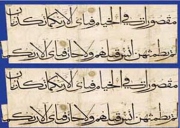 مقصورات في الخيام فبأي آلاء ربكما تكذبان
لم يطمثهن إنس قبلهم ولا جان فبأي آلاء ربكما
مقصورات في الخيام فبأي آلاء ربكما تكذبان
لم يطمثهن إنس قبلهم ولا جان فبأي آلاء ربكما